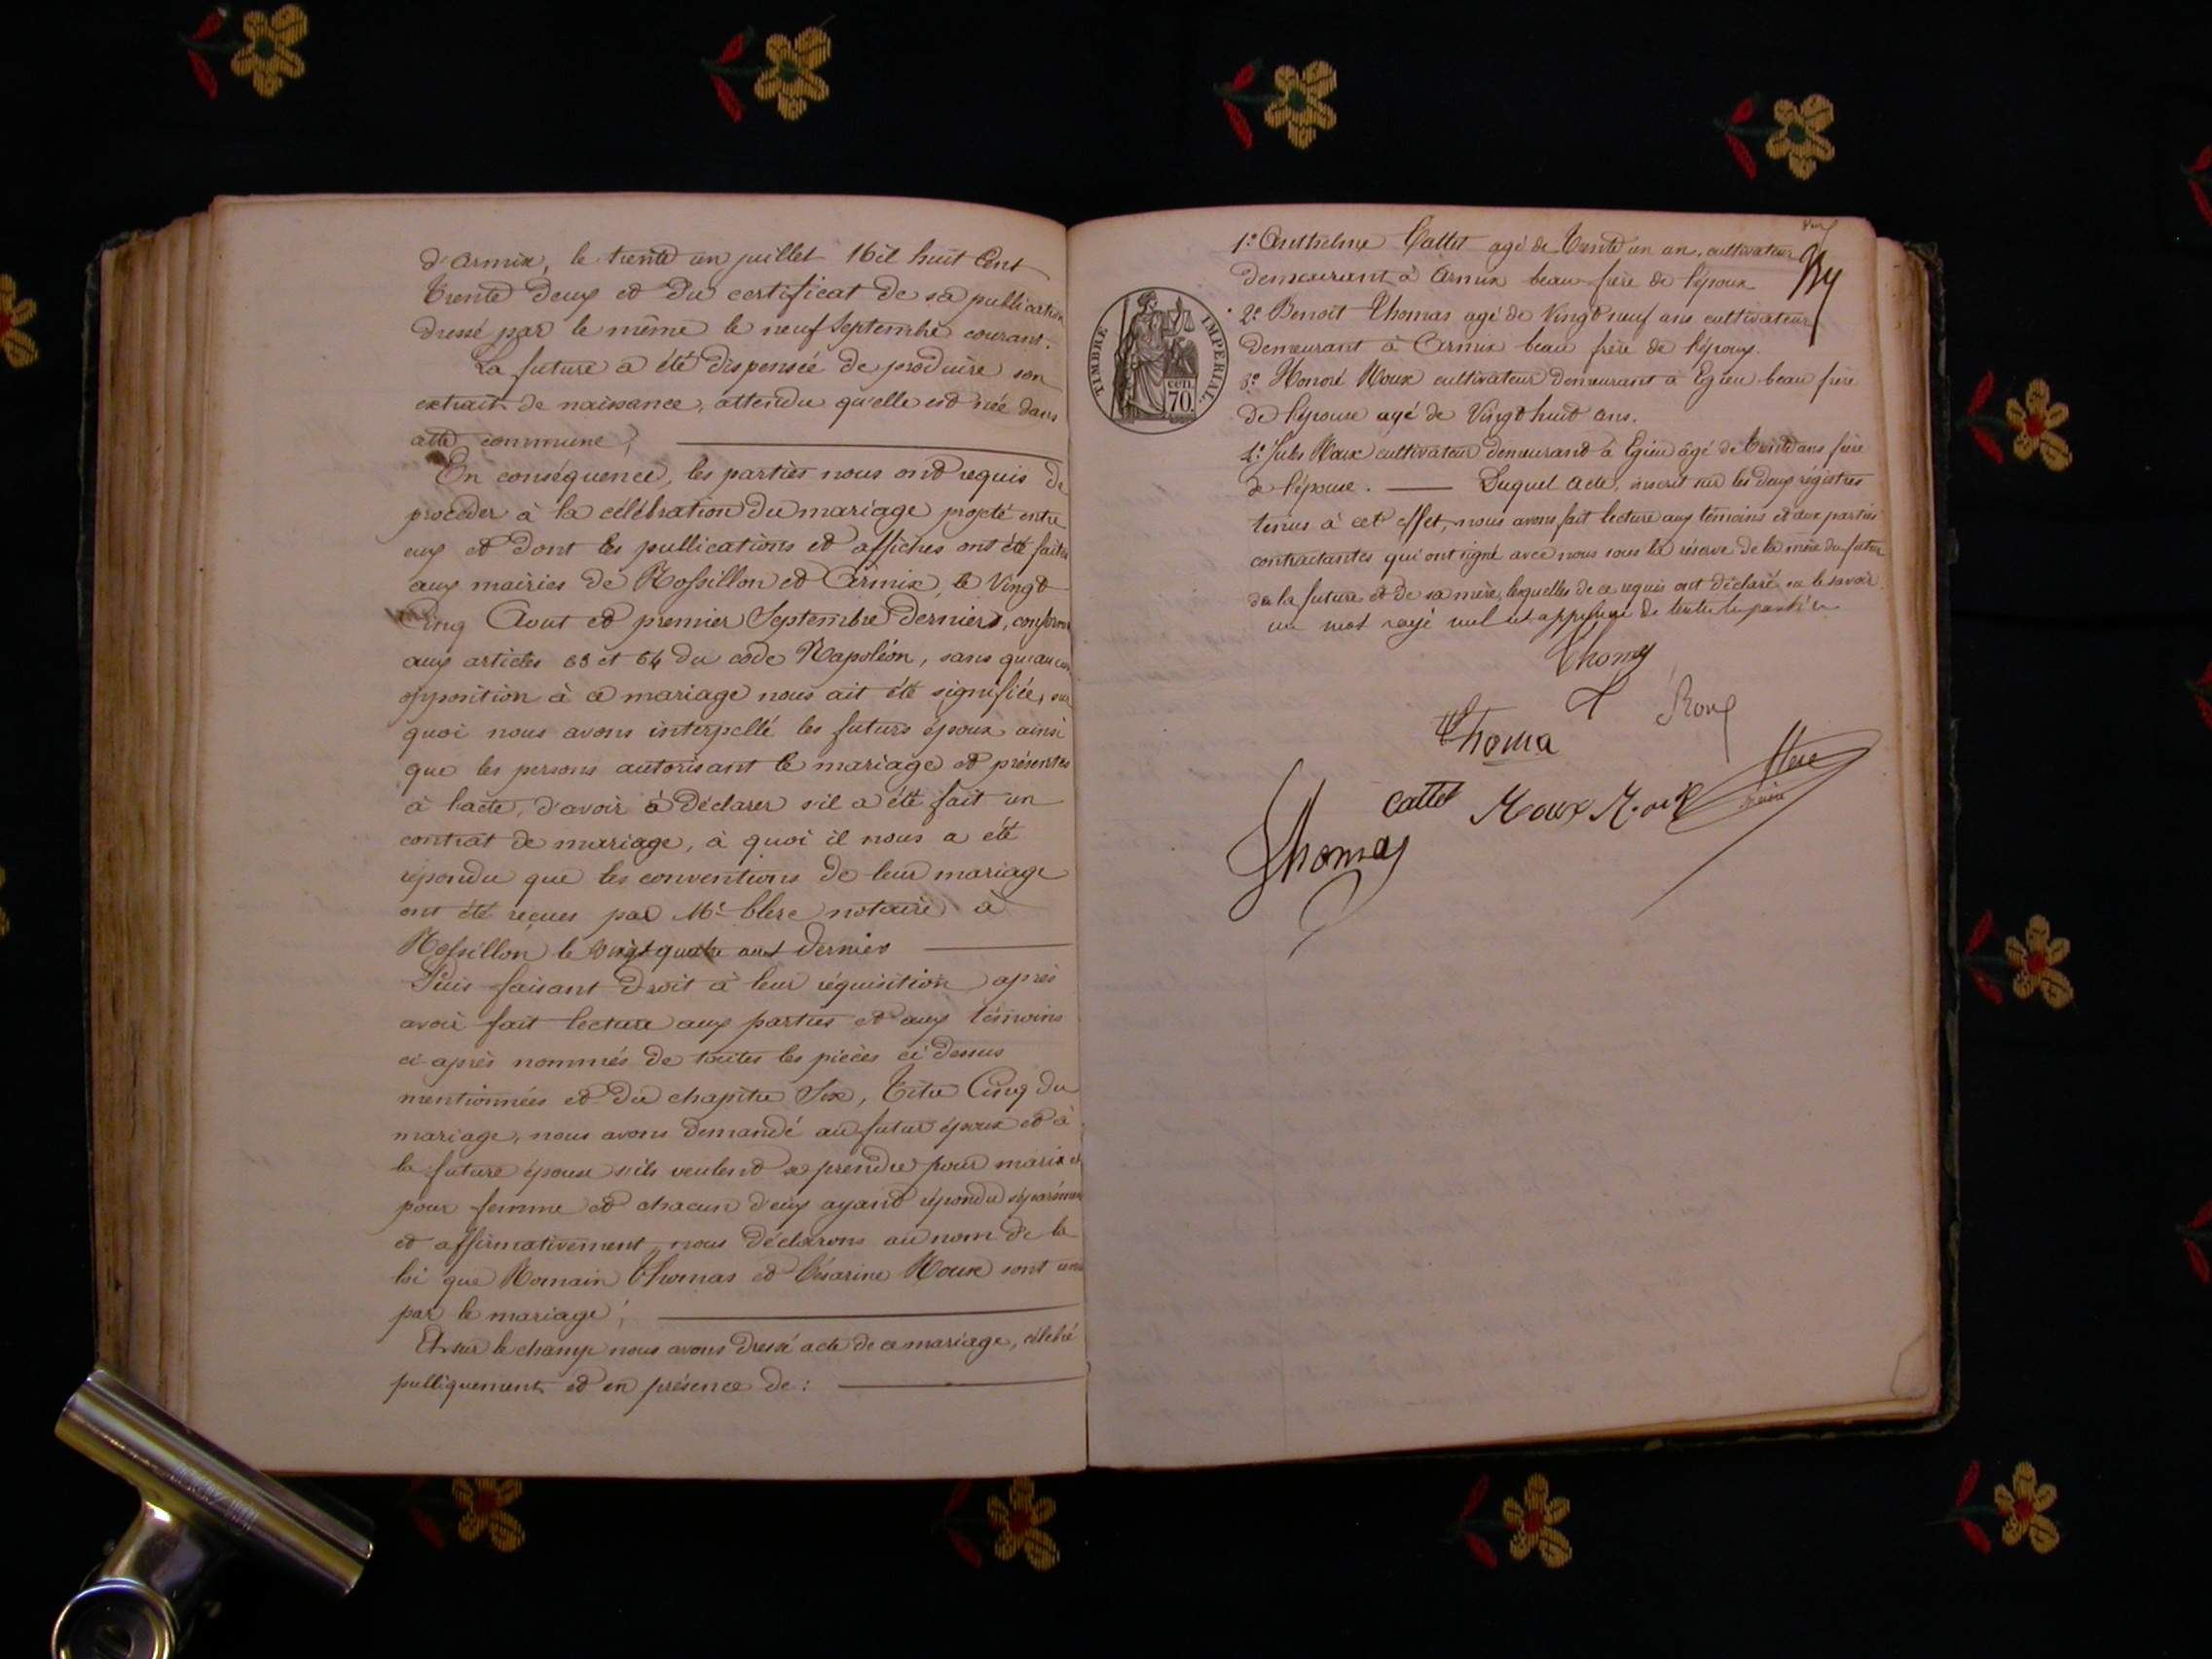 d'Armix, le trente un juillet Mil huit Cent
Trente deux et du certificat de sa publication
dressé par le même le neuf Septembre courant.
La future a été dispensée de produire son
extrait de naissance, attendu qu'elle est née dans
cette commune;
En conséquence, les parties nous ont requis de
procéder à la célébration du mariage projeté entre
eux et dont les publications et affiches ont été faites
aux mairies de Rossillon et Armix, le Vingt
Cinq Aout et premier Septembre derniers, conform
aux articles 63 et 64 du code Napoléon, sans qu'aucune
opposition à ce mariage nous ait été signifiée, sur
quoi nous avons interpellé les futurs époux ainsi
que les persons autorisant le mariage et présentes
à l'acte, d'avoir à déclarer s'il a été fait un
contrat de mariage, à quoi il nous a été
répondu que les conventions de leur mariage
ont été reçues par Me Clerc notaire à
Rossillon le Vingt quatre aout dernier
Puis faisant droit à leur réquisition après
avoir fait lecture aux parties et aux témoins
ci après nommés de toutes les pièces ci dessus
mentionnées et du chapitre Six, Titre Cinq du
mariage, nous avons demandé au futur époux et à
la future épouse s'ils veulent se prendre pour mari et
pour femme et chacun d'eux ayant répondu séparément
et affirmativement, nous déclarons au nom de la
loi que Romain Thomas et Césarine Roux sont unis
par le mariage;
Et sur le champ nous avons dressé acte de ce mariage, célébré
publiquement et en présence de :
1° Anthelme Cattet agé de Trente un an, cultivateur
demeurant à Armix beau frère de l'époux
2° Benoit Thomas agé de Vingt neuf ans cultivateur
demeurant à Armix beau frère de l'époux.
3° Honoré Roux cultivateur demeurant à Egieu beau frère
de l'épouse agé de Vingt huit ans.
4° Jules Roux cultivateur demeurant à Egieu âgé de Trente ans frère
de l'épouse. Duquel acte, inscrit sur les deux régistres
tenus à cet effet, nous avons fait lecture aux témoins et aux parties
contractantes qui ont signé avec nous sous la réserve de la mère du futur
de la future et de sa mère, lesquelles de ce requis ont déclaré ne le savoir
un mot rayé nul et approuvé de toute les parties
TIMBRE IMPERIAL.
cen
70
Thomas
Roux
Thoma
cattet Roux Roux
Thomas